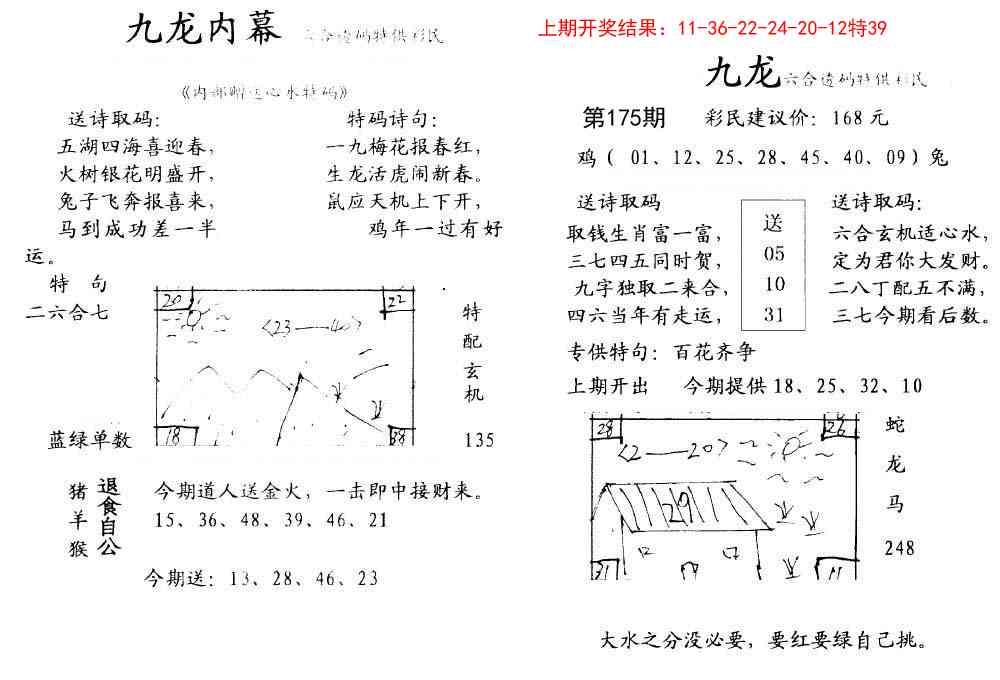 九龙内幕 六合透码特供彩民
《内部赠送心水特码》
送诗取码：
五湖四海喜迎春，
火树银花明盛开，
兔子飞奔报喜来，
马到成功差一半
运。
特码诗句：
一九梅花报春红，
生龙活虎闹新春。
鼠应天机上下开，
鸡年一过有好
特 句
二六合七
蓝绿单数
20
22
<23——40>
18
38
特
配
玄
机
135
猪
羊
猴
退食自公
今期道人送金火，一击即中接财来。
15、36、48、39、46、21
今期送：13、28、46、23
上期开奖结果：11-36-22-24-20-12特39
九龙六合透码特供彩民
第175期 彩民建议价：168元
鸡（ 01、12、25、28、45、40、09）兔
送诗取码
取钱生肖富一富，
三七四五同时贺，
九字独取二来合，
四六当年有走运，
送
05
10
31
送诗取码：
六合玄机适心水，
定为君你大发财。
二八丁配五不满，
三七今期看后数。
专供特句：百花齐争
上期开出 今期提供18、25、32、10
28
26
<2——20>
29
31
11
蛇
龙
马
248
大水之分没必要，要红要绿自己挑。